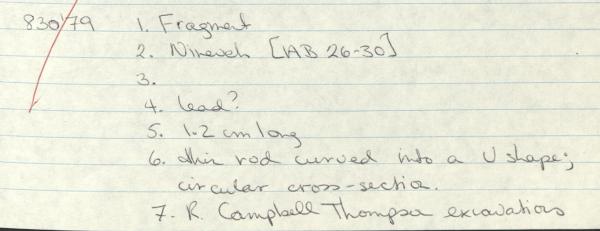 830'79 1. Fragment
2. Nineveh [IAB 26-30]
3.
4. lead?
5. 1.2 cm long
6. thin rod curved into a U shape;
circular cross-section.
7. R. Campbell Thompson excavations